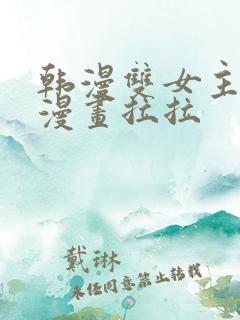 韩漫雙女主
漫畫拉拉
戴琳
未经同意禁止转载